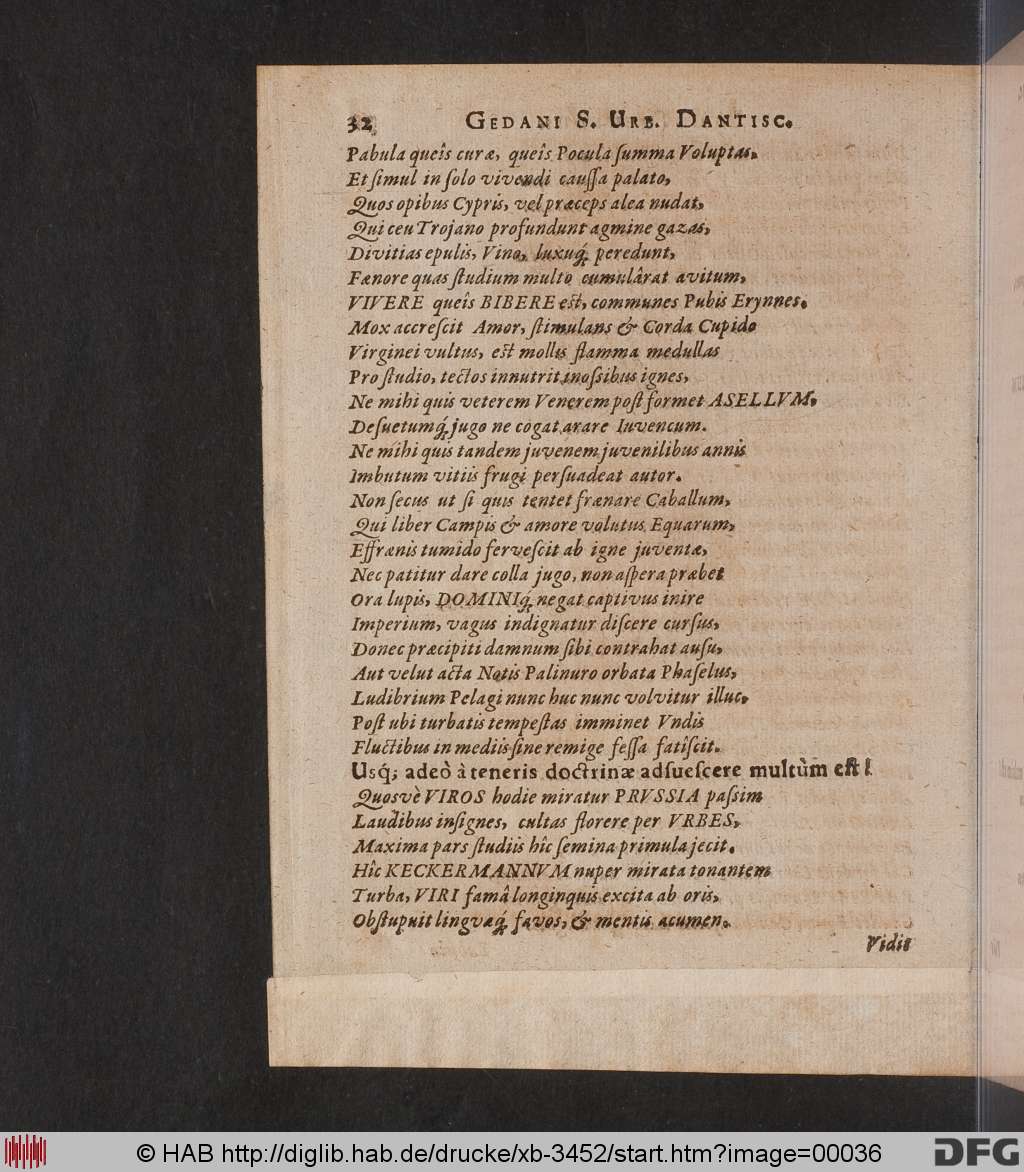 32 GEDANI S. URB. DANTISC.
Pabula queîs curæ, queîs Pocula ſumma Voluptas,
Et ſimul in ſolo vivendi cauſſa palato,
Quos opibus Cypris, vel præceps alea nudat,
Qui ceu Trojano profundunt agmine gazas,
Divitias epulis, Vino, luxuq́; peredunt,
Fænore quas ſtudium multo cumulârat avitum,
VIVERE queîs BIBERE est, communes Pubis Erynnes.
Mox accreſcit Amor, ſtimulans & Corda Cupido
Virginei vultus, est mollis flamma medullas
Pro ſtudio, tectos innutrit inoſsibus ignes,
Ne mihi quis veterem Venerem poſt formet ASELLVM,
Deſuetumq́; jugo ne cogat arare Iuvencum.
Ne mihi quis tandem juvenem juvenilibus annis
Imbutum vitiis frugi perſuadeat autor.
Non ſecus ut ſi quis tentet frænare Caballum,
Qui liber Campis & amore volutus Equarum,
Effrænis tumido ferveſcit ab igne juventæ,
Nec patitur dare colla jugo, non aſpera præbet
Ora lupis, DOMINIq́; negat captivus inire
Imperium, vagus indignatur diſcere curſus,
Donec præcipiti damnum ſibi contrahat auſu,
Aut velut acta Notis Palinuro orbata Phaſelus,
Ludibrium Pelagi nunc huc nunc volvitur illuc,
Poſt ubi turbatis tempeſtas imminet Vndis
Fluctibus in mediis ſine remige feſſa fatîſcit.
Usq́; adeò à teneris doctrinæ adſueſcere multùm eſt!
Quosvè VIROS hodie miratur PRVSSIA paſſim
Laudibus inſignes, cultas florere per VRBES,
Maxima pars ſtudiis hîc ſemina primula jecit.
Hîc KECKERMANNVM nuper mirata tonantem
Turba, VIRI famâ longinquis excita ab oris,
Obſtupuit lingvæq́; favos, & mentis acumen.
Vidit
© HAB http://diglib.hab.de/drucke/xb-3452/start.htm?image=00036
DFG